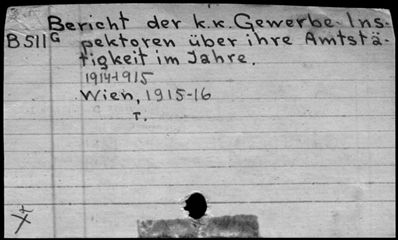 Bericht der k.k. Gewerbe-Ins-
B511G pektoren über ihre Amtstä-
tigkeit im Jahre.
1914-1915
Wien, 1915-16
T.